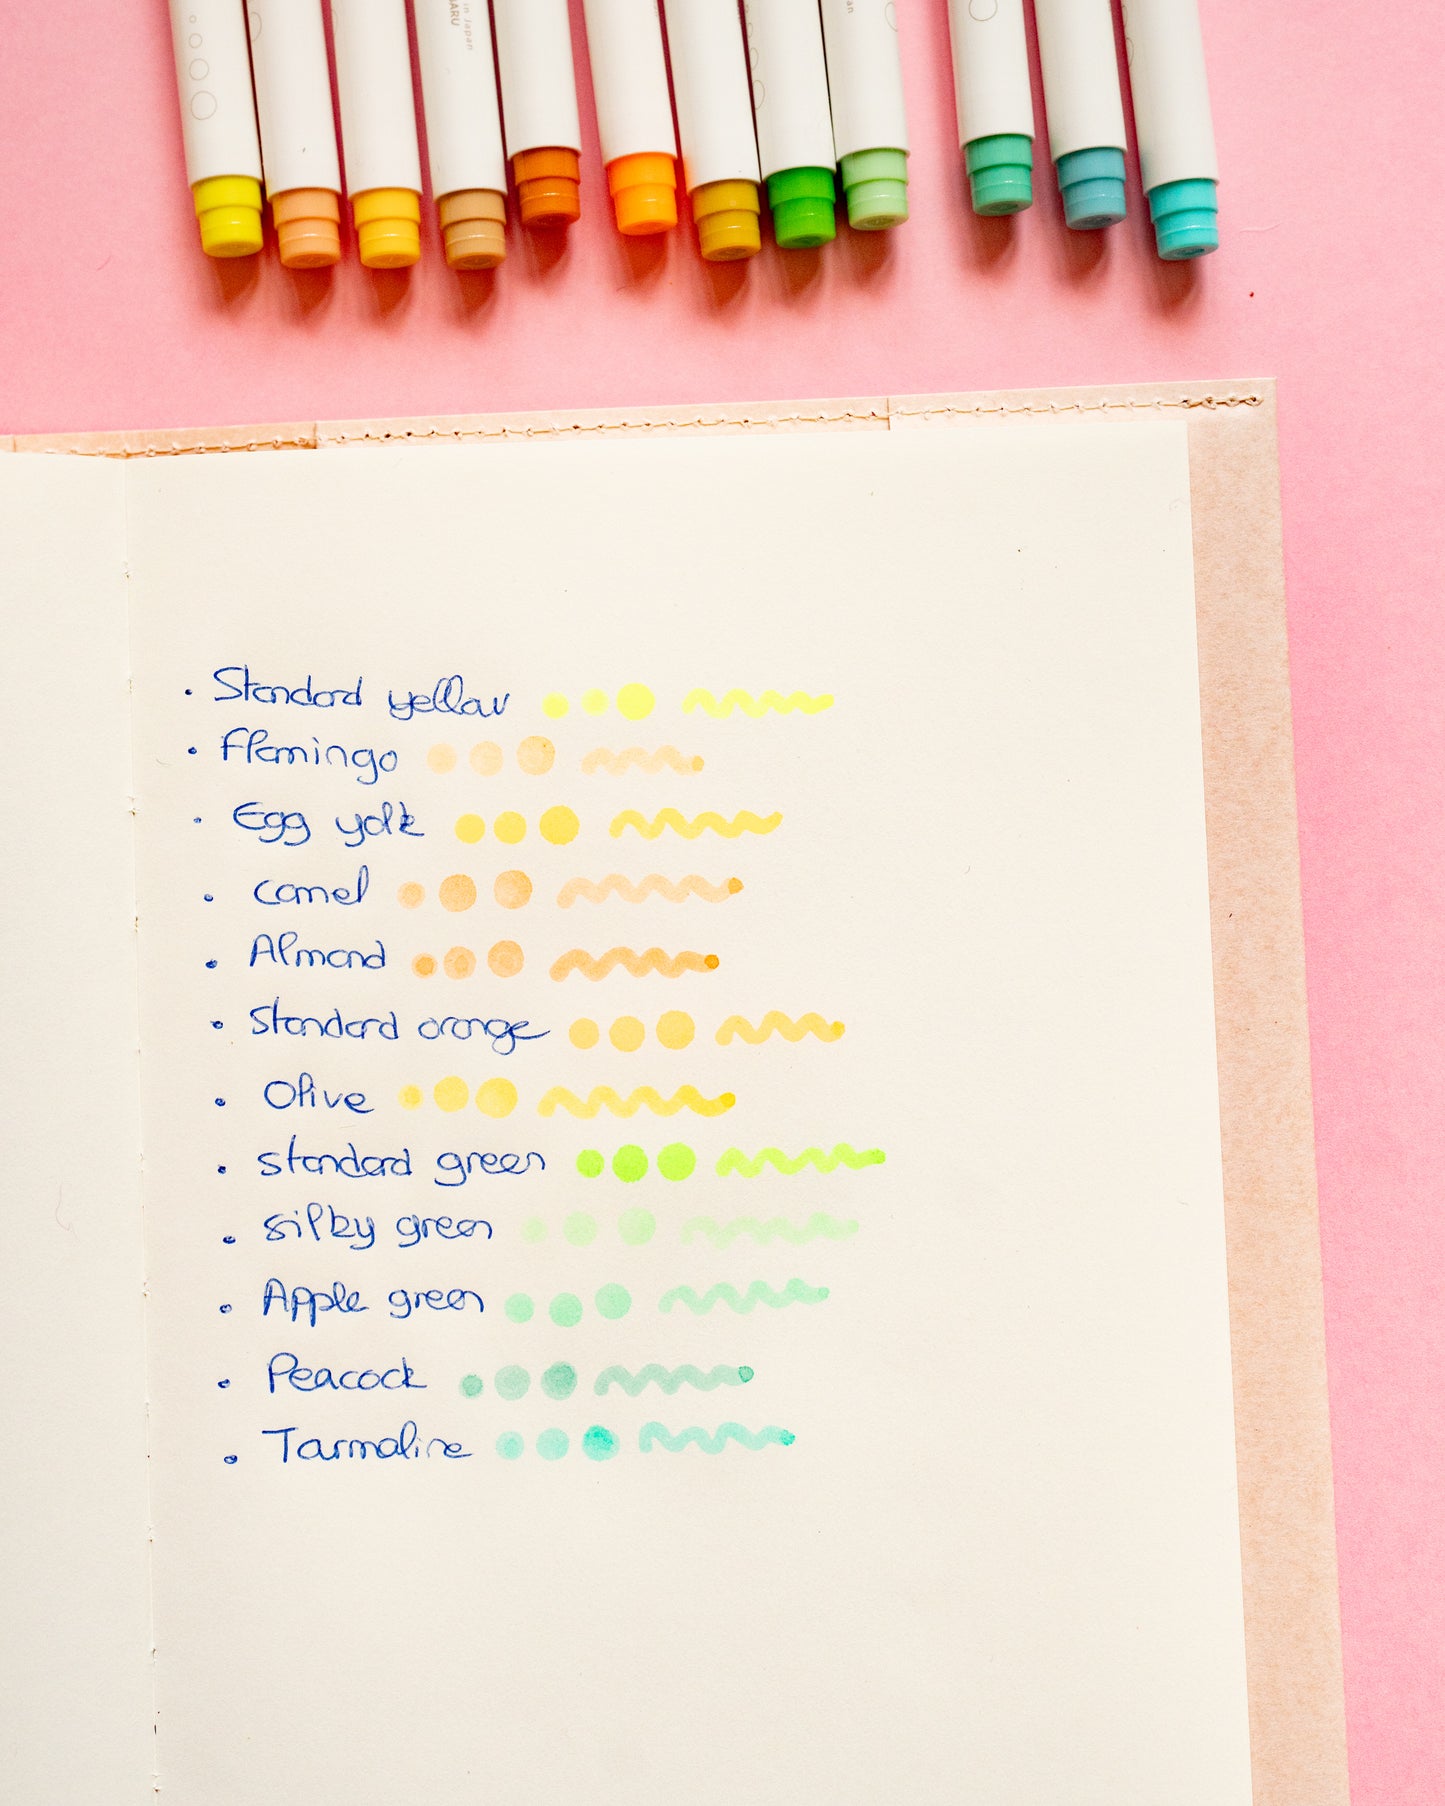 in Japan
BARU
an
• Standard yellow
• Flamingo
• Egg yolk
• camel
• Almond
• Standard orange
• Olive
• standard green
• silky green
• Apple green
• Peacock
• Tarmaline